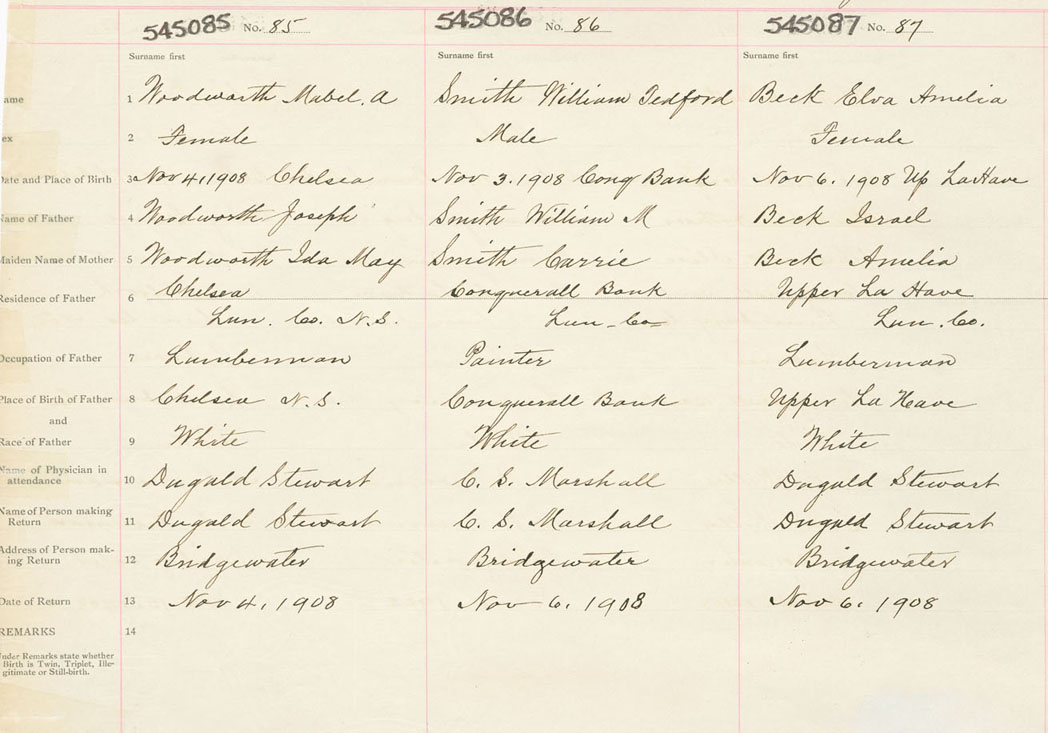 545085 No. 85 545086 No. 86 545087 No. 87
Surname first Surname first Surname first
ame 1 Woodworth Mabel. A Smith William Tedford Beck Elva Amelia
ex 2 Female Male Female
Date and Place of Birth 3 Nov 4, 1908 Chelsea Nov 3. 1908 Conq Bank Nov 6. 1908 Up LaHave
Name of Father 4 Woodworth Joseph Smith William M Beck Israel
Maiden Name of Mother 5 Woodworth Ida May Smith Carrie Beck Amelia
Residence of Father 6 Chelsea Conquerall Bank Upper La Have
Lun. Co. N.S. Lun - Co Lun. Co.
Occupation of Father 7 Lumberman Painter Lumberman
Place of Birth of Father 8 Chelsea N.S. Conquerall Bank Upper La Have
and
Race of Father 9 White White White
Name of Physician in
attendance 10 Dugald Stewart C. S. Marshall Dugald Stewart
Name of Person making
Return 11 Dugald Stewart C. S. Marshall Dugald Stewart
Address of Person mak-
ing Return 12 Bridgewater Bridgewater Bridgewater
Date of Return 13 Nov 4. 1908 Nov 6. 1908 Nov 6. 1908
REMARKS 14
Under Remarks state whether
Birth is Twin, Triplet, Ille-
gitimate or Still-birth.